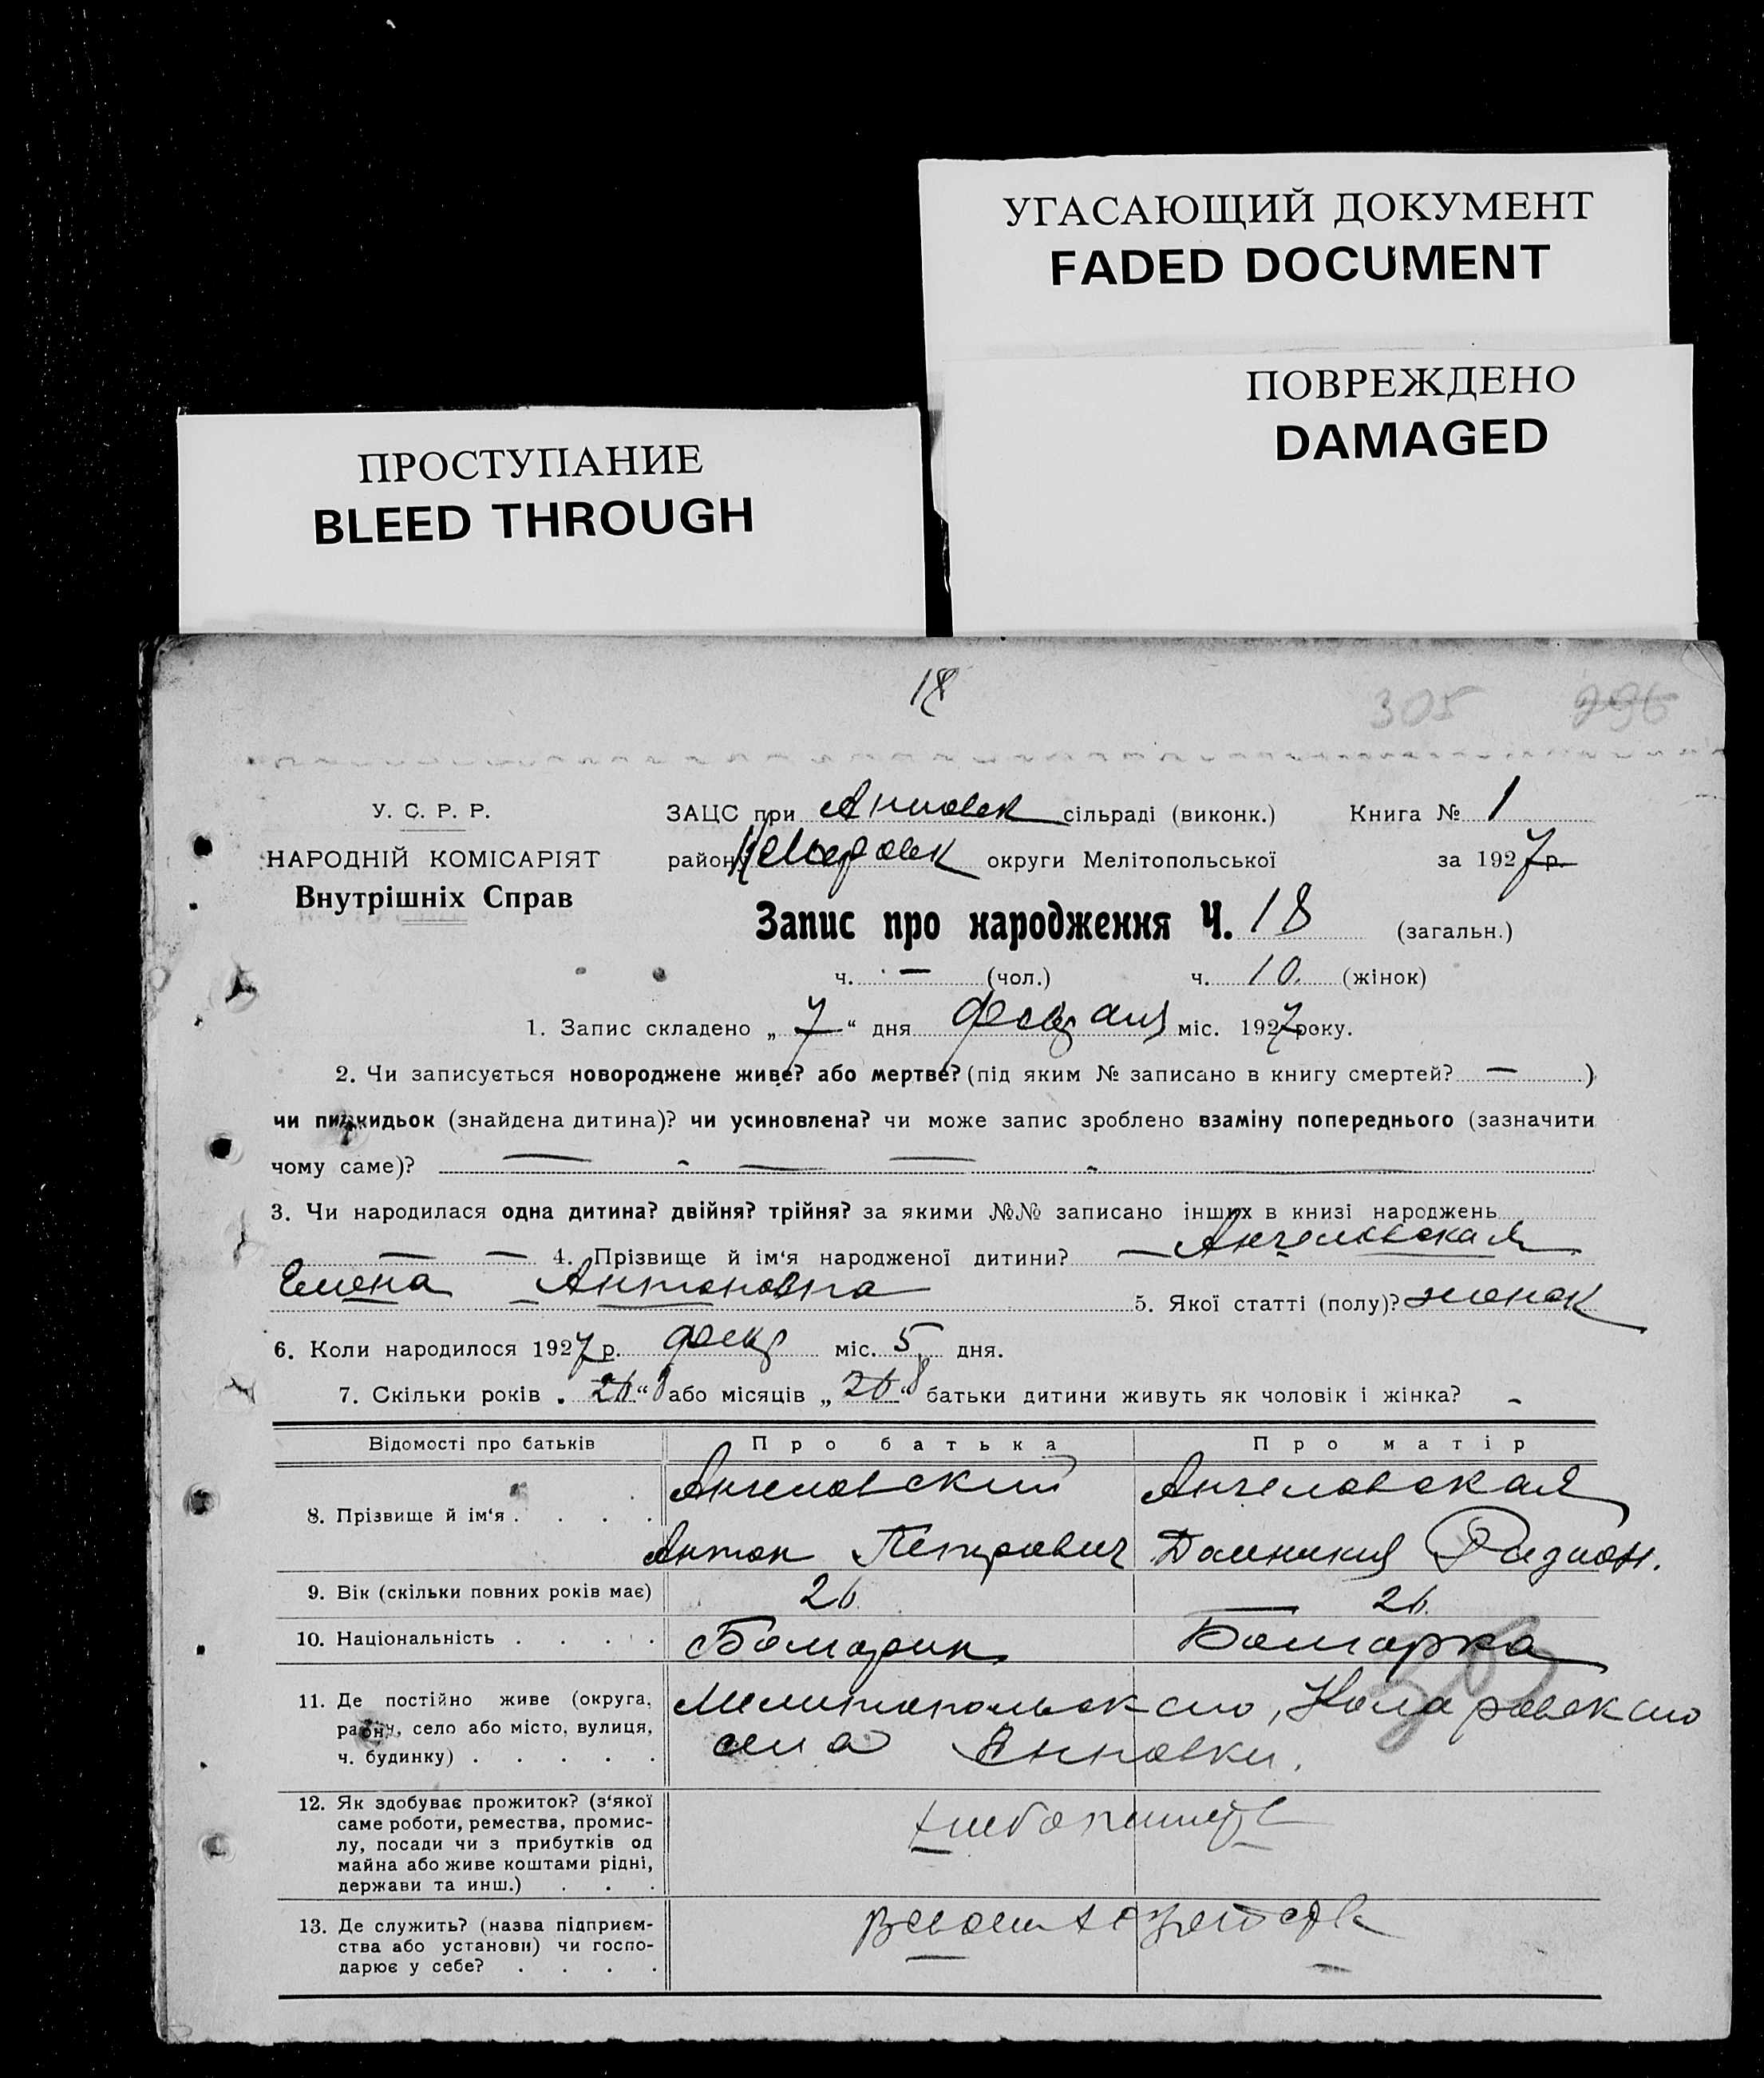 УГАСАЮЩИЙ ДОКУМЕНТ
FADED DOCUMENT
ПОВРЕЖДЕНО
DAMAGED
ПРОСТУПАНИЕ
BLEED THROUGH
18
305 296
У. С. Р. Р.
НАРОДНІЙ КОМІСАРІЯТ
Внутрішніх Справ
ЗАЦС при Анновск сільраді (виконк.) Книга № 1
району округи Мелітопольської за 1927 р.
Запис про народження Ч. 18 (загальн.)
ч. — (чол.) ч. 10. (жінок)
1. Запис складено „ 7 “ дня февраля міс. 1927 року.
2. Чи записується новороджене живе? або мертве? (під яким № записано в книгу смертей? — )
чи підкидьок (знайдена дитина)? чи усиновлена? чи може запис зроблено взаміну попереднього (зазначити
чому саме)?
3. Чи народилася одна дитина? двійня? трійня? за якими №№ записано інших в книзі народжень
— — 4. Прізвище й ім‘я народженої дитини? — Ангеловская
Елена Антоновна 5. Якої статті (полу)? женск
6. Коли народилося 1927 р. февр міс. 5 дня.
7. Скільки років „ “ 8 або місяців „ “ 8 батьки дитини живуть як чоловік і жінка? -
Відомості про батьків Про батька Про матір
8. Прізвище й ім‘я . . . . Ангеловский Ангеловская
Антон Петрович Домникия Радион.
9. Вік (скільки повних років має) 26. 26.
10. Національність . . . . Болгарин Болгарка
11. Де постійно живе (округа, Мелитопольского, Коларовского
району, село або місто, вулиця, села Анновки.
ч. будинку) . . . . .
12. Як здобуває прожиток? (з‘якої
саме роботи, ремества, промис-
лу, посади чи з прибутків од
майна або живе коштами рідні,
держави та инш.) . . . хлебопашеств
13. Де служить? (назва підприєм-
ства або установи) чи госпо-
дарює у себе? . . . .